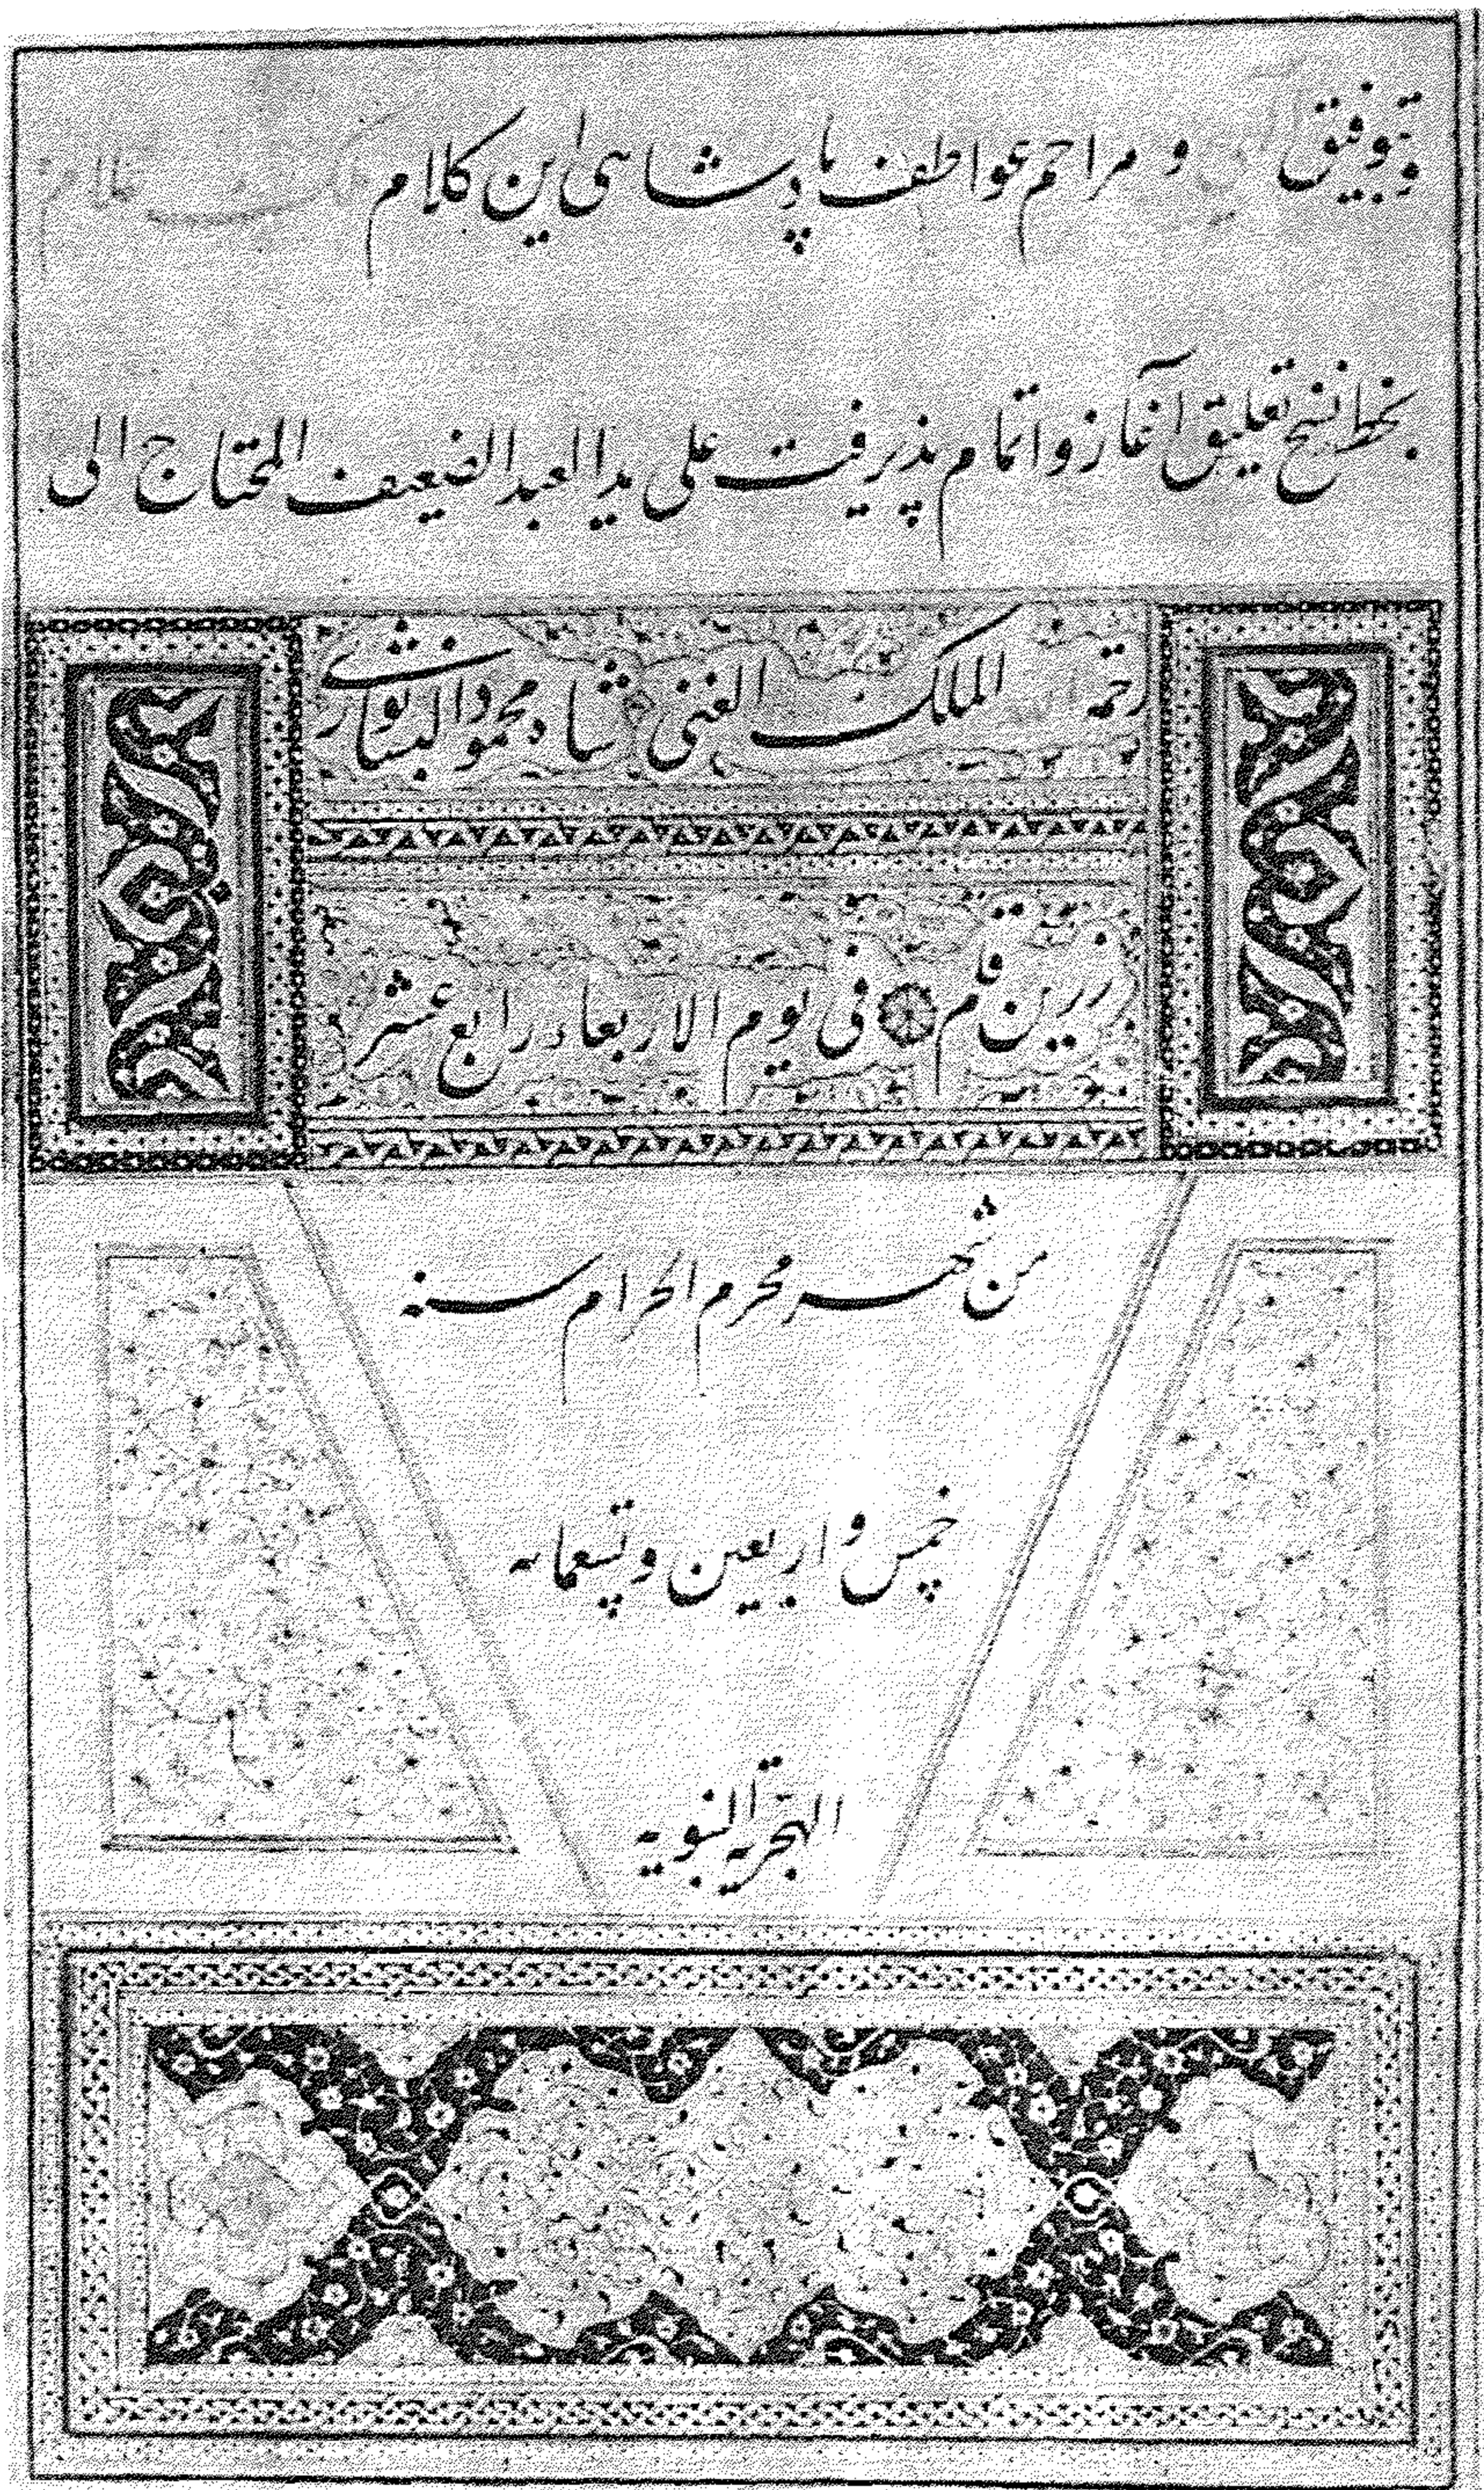 بتوفیق و مراحم عواطف پادشاهی این کلام
بخط نسخ تعلیق آغاز و اتمام پذیرفت علی ید العبد الضعیف المحتاج الی
رحمة الملک الغنی شاه محمود النیسابوری
زرین قلم فی یوم الاربعاء رابع عشر
من شهر محرم الحرام سنه
خمس و اربعین و تسعمایه
الهجریة النبویه